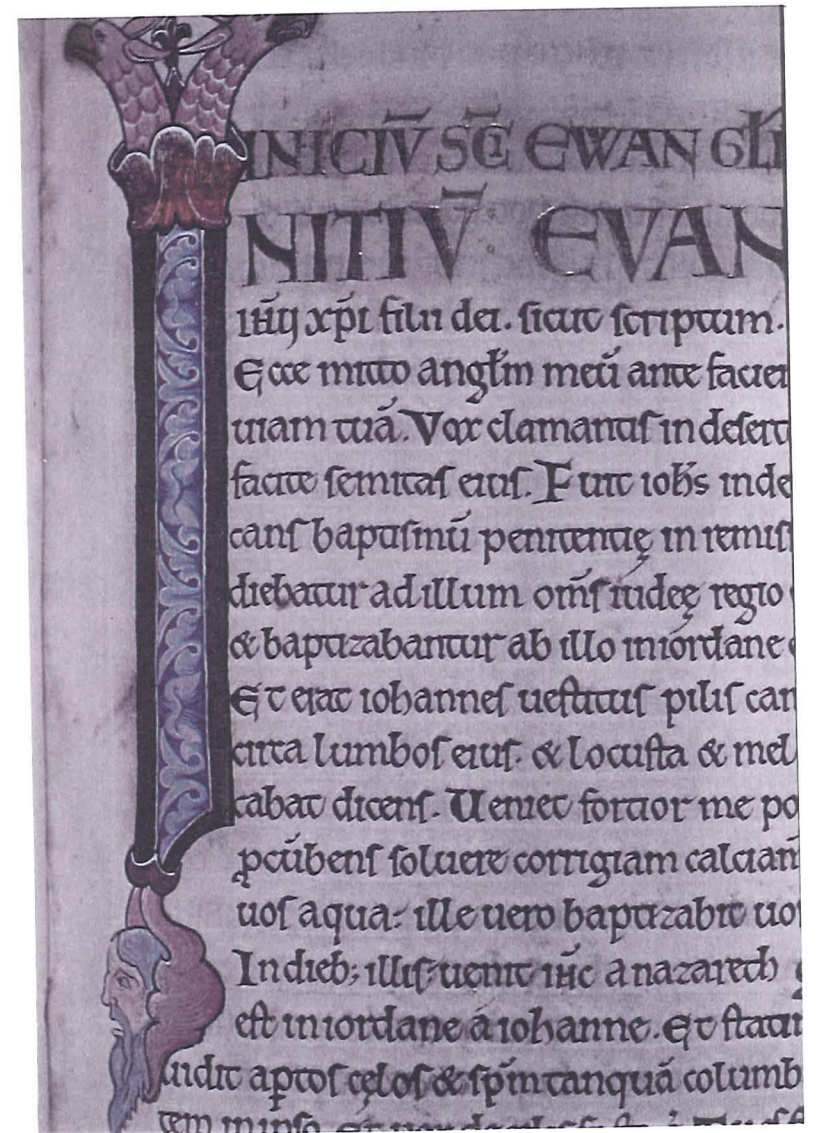 INICIV̄ SC̄I EWANGLI
NITIV̄ EVAN
ih̄u xp̄i filii dei. sicut scriptum.
Ecce mitto angl̄m meū ante facien
uiam tuā. Vox clamantis in desert
facite semitas eius. Fuit ioh̄s in de
cans baptismū penitentię in remis
diebatur ad illum om̄s iudeę regio
& baptizabantur ab illo in iordane
Et erat iohannes uestitus pilis cam
circa lumbos eius. & locusta & mel
cabat dicens. Veniet fortior me po
ꝓcūbens soluere corrigiam calciam
uos aqua: ille uero baptizabit uo
In dieb; illis uenit ih̄c a nazareth
est in iordane a iohanne. Et stati
uidit aꝑtos cęlos & sp̄m tanquā columb
tem in ipso. Et uox